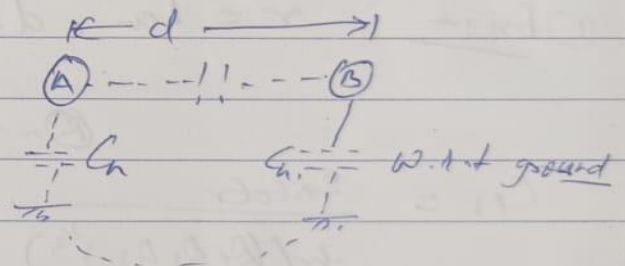 d
A B
Cn Cn. W.r.t ground